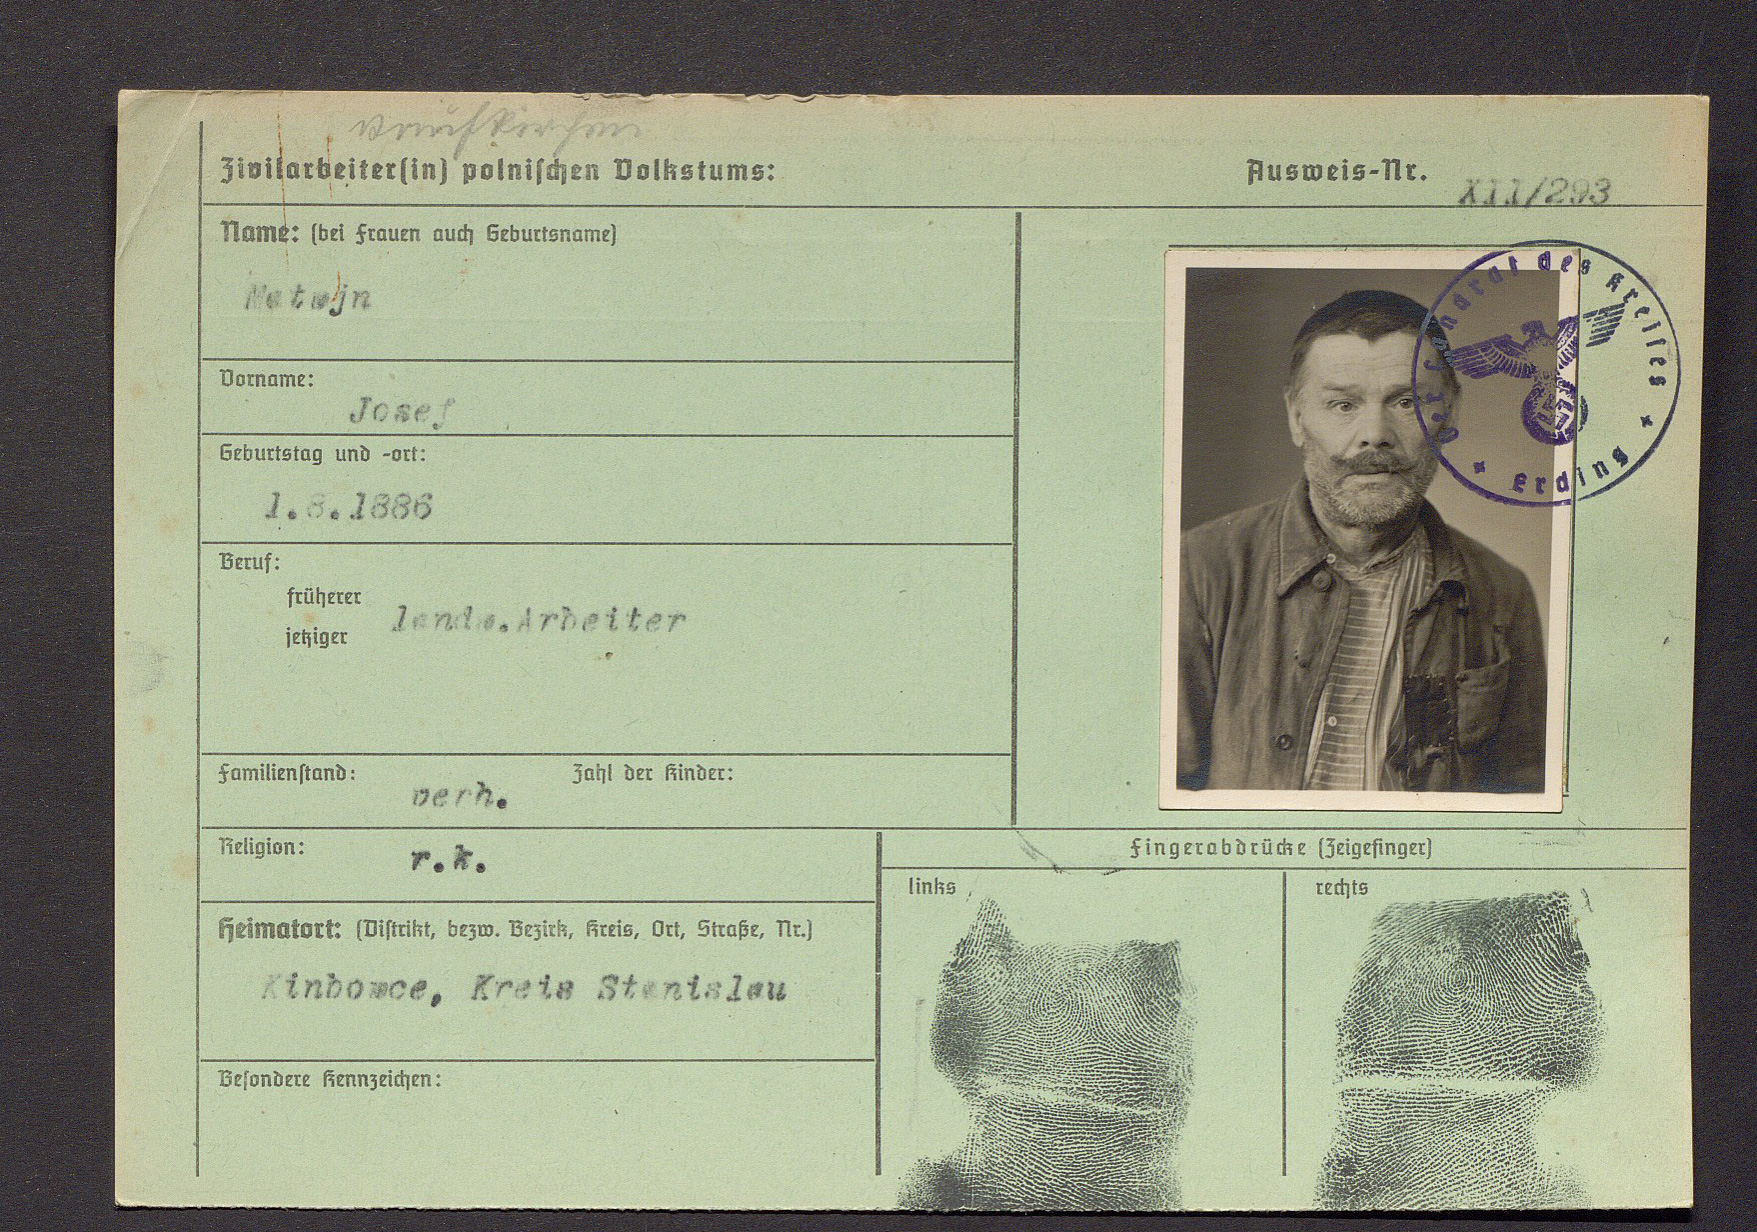 Zivilarbeiter(in) polnischen Volkstums:
Ausweis-Nr. XII/293
Name: (bei Frauen auch Geburtsname)
Matwjn
Vorname:
Josef
Geburtstag und -ort:
1.8.1886
Beruf:
früherer
jetziger
landw.Arbeiter
Familienstand: verh. Zahl der Kinder:
Religion: r.k.
Heimatort: (Distrikt, bezw. Bezirk, Kreis, Ort, Straße, Nr.)
Kreis Stanislau
Besondere Kennzeichen:
Landrat des Kreises
* Erding *
Fingerabdrücke (Zeigefinger)
links
rechts